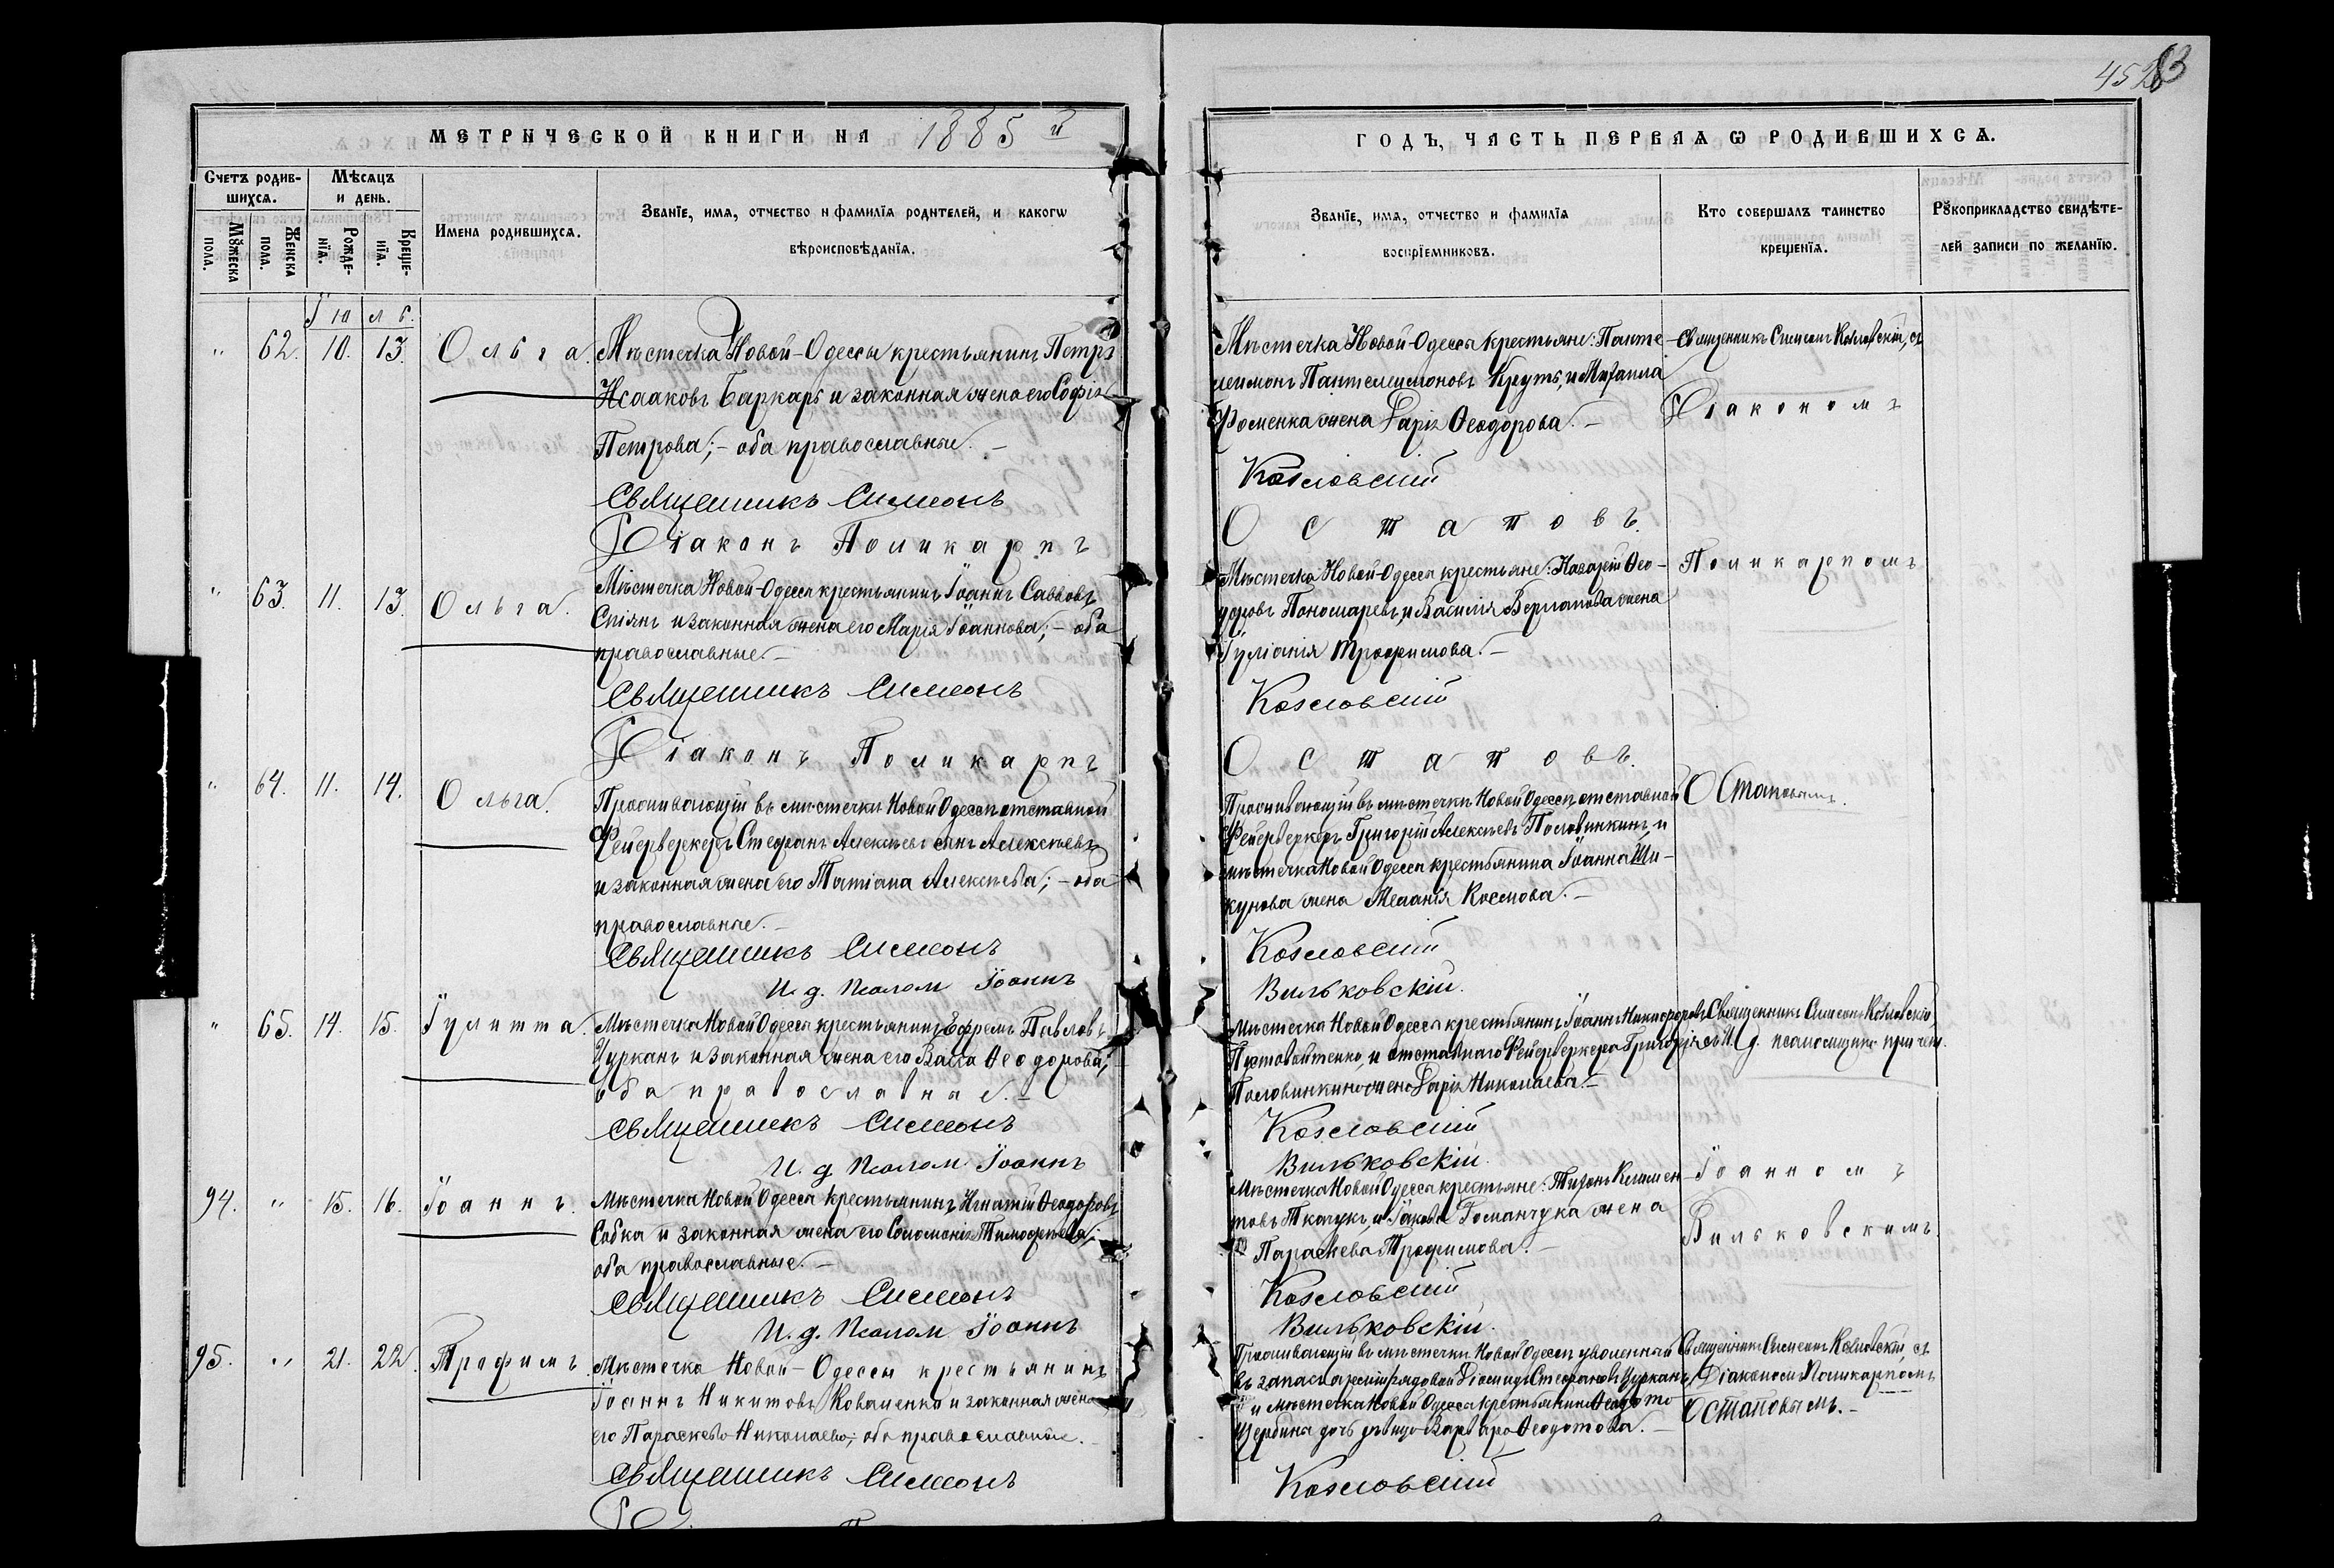 МЕТРИЧЕСКОЙ КНИГИ НА 1885 й
Счетъ родив-
шихсѧ.
Мѣсѧцъ
и день.
Имена родившихсѧ.
Званїе, имѧ, отчество и фамилїѧ родителей, и какогѡ
вѣроисповѣданїѧ.
Мꙋжеска
пола.
Женска
пола.
Рожде-
нїѧ.
Креще-
нїѧ.
Іюль.
" 62. 10. 13. Ольга. Мѣстечка Новой-Одессы крестьянинъ Петръ
Исааковъ Баркарь и законная жена его Софія
Петрова; - оба православные. -
Священникъ Симеонъ
Діаконъ Поликарпъ
" 63. 11. 13. Ольга. Мѣстечка Новой-Одессы крестьянинъ Іоаннъ Саввовъ
Спіянъ и законная жена его Марія Іоаннова; - оба
православные. -
Священникъ Симеонъ
Діаконъ Поликарпъ
" 64. 11. 14. Ольга. Проживающій въ мѣстечкѣ Новой Одессѣ отставной
Фейерверкеръ Стефанъ Алексѣевъ сынъ Алексѣевъ
и законная жена его Татіана Алексѣева; - оба
православные. -
Священникъ Симеонъ
И. д. Псалом Іоаннъ
" 65. 14. 15. Іулитта. Мѣстечка Новой Одессы крестьянинъ Ефремъ Павловъ
Цурканъ и законная жена его Васса Ѳеодорова;
оба православные. -
Священникъ Симеонъ
И. д. Псалом Іоаннъ
94. " 15. 16. Іоаннъ. Мѣстечка Новой Одессы крестьянинъ Игнатій Ѳеодоровъ
Собка и законная жена его Соломонія Тимофѣева;
оба православные. -
Священникъ Симеонъ
И. д. Псалом Іоаннъ
95. " 21. 22. Трофимъ. Мѣстечка Новой-Одессы крестьянинъ
Іоаннъ Никитовъ Коваленко и законная жена
его Параскева Николаева; оба православные. -
Священникъ Симеонъ
452
83
ГОДЪ, ЧАСТЬ ПЕРВАѦ Ѡ РОДИВШИХСѦ.
Званїе, имѧ, отчество и фамилїѧ
воспрїемниковъ.
Кто совершалъ таинство
крещенїѧ.
Рꙋкоприкладство свидѣте-
лей записи по желанїю.
Мѣстечка Новой-Одессы крестьяне: Панте-
леимонъ Пантелеимоновъ Крутъ, и Михаила
Фоменка жена Дарія Ѳеодорова. -
Козловскій
Остаповъ.
Священникъ Симеонъ Козловскій, съ
Діакономъ
Мѣстечка Новой-Одессы крестьяне: Назарій Ѳео-
доровъ Пономаревъ, и Василія Верлапова жена
Іуліанія Трофимова. -
Козловскій
Остаповъ.
Поликарпомъ
Проживающій въ мѣстечкѣ Новой Одессѣ отставной
Фейерверкеръ Григорій Алексѣевъ Половинкинъ, и
мѣстечка Новой Одессы крестьянина Іоанна Ши-
кунова жена Меланія Космова. -
Козловскій
Вильковскій.
Остаповымъ.
Мѣстечка Новой Одессы крестьянинъ Іоаннъ Никифоровъ
Пустовойтенко, и отставнаго Фейерверкера Григорія
Половинкина жена Дарія Николаева. -
Козловскій
Вильковскій.
Священникъ Симеонъ Козловскій
съ И. д. псаломщика причет.
Мѣстечка Новой Одессы крестьяне: Тихонъ Климен-
товъ Ткачукъ, и Іакова Гоманчука жена
Параскева Трофимова. -
Козловскій
Вильковскій.
Іоанномъ
Вильковскимъ.
Проживающій въ мѣстечкѣ Новой Одессѣ уволенный
въ запасъ арміи рядовой Діомидъ Стефановъ Цурканъ,
и мѣстечка Новой Одессы крестьянина Ѳеодота
Щербина дочь дѣвица Варвара Ѳеодотова. -
Козловскій
Священникъ Симеонъ Козловскій, съ
Діакономъ Поликарпомъ
Остаповымъ. -